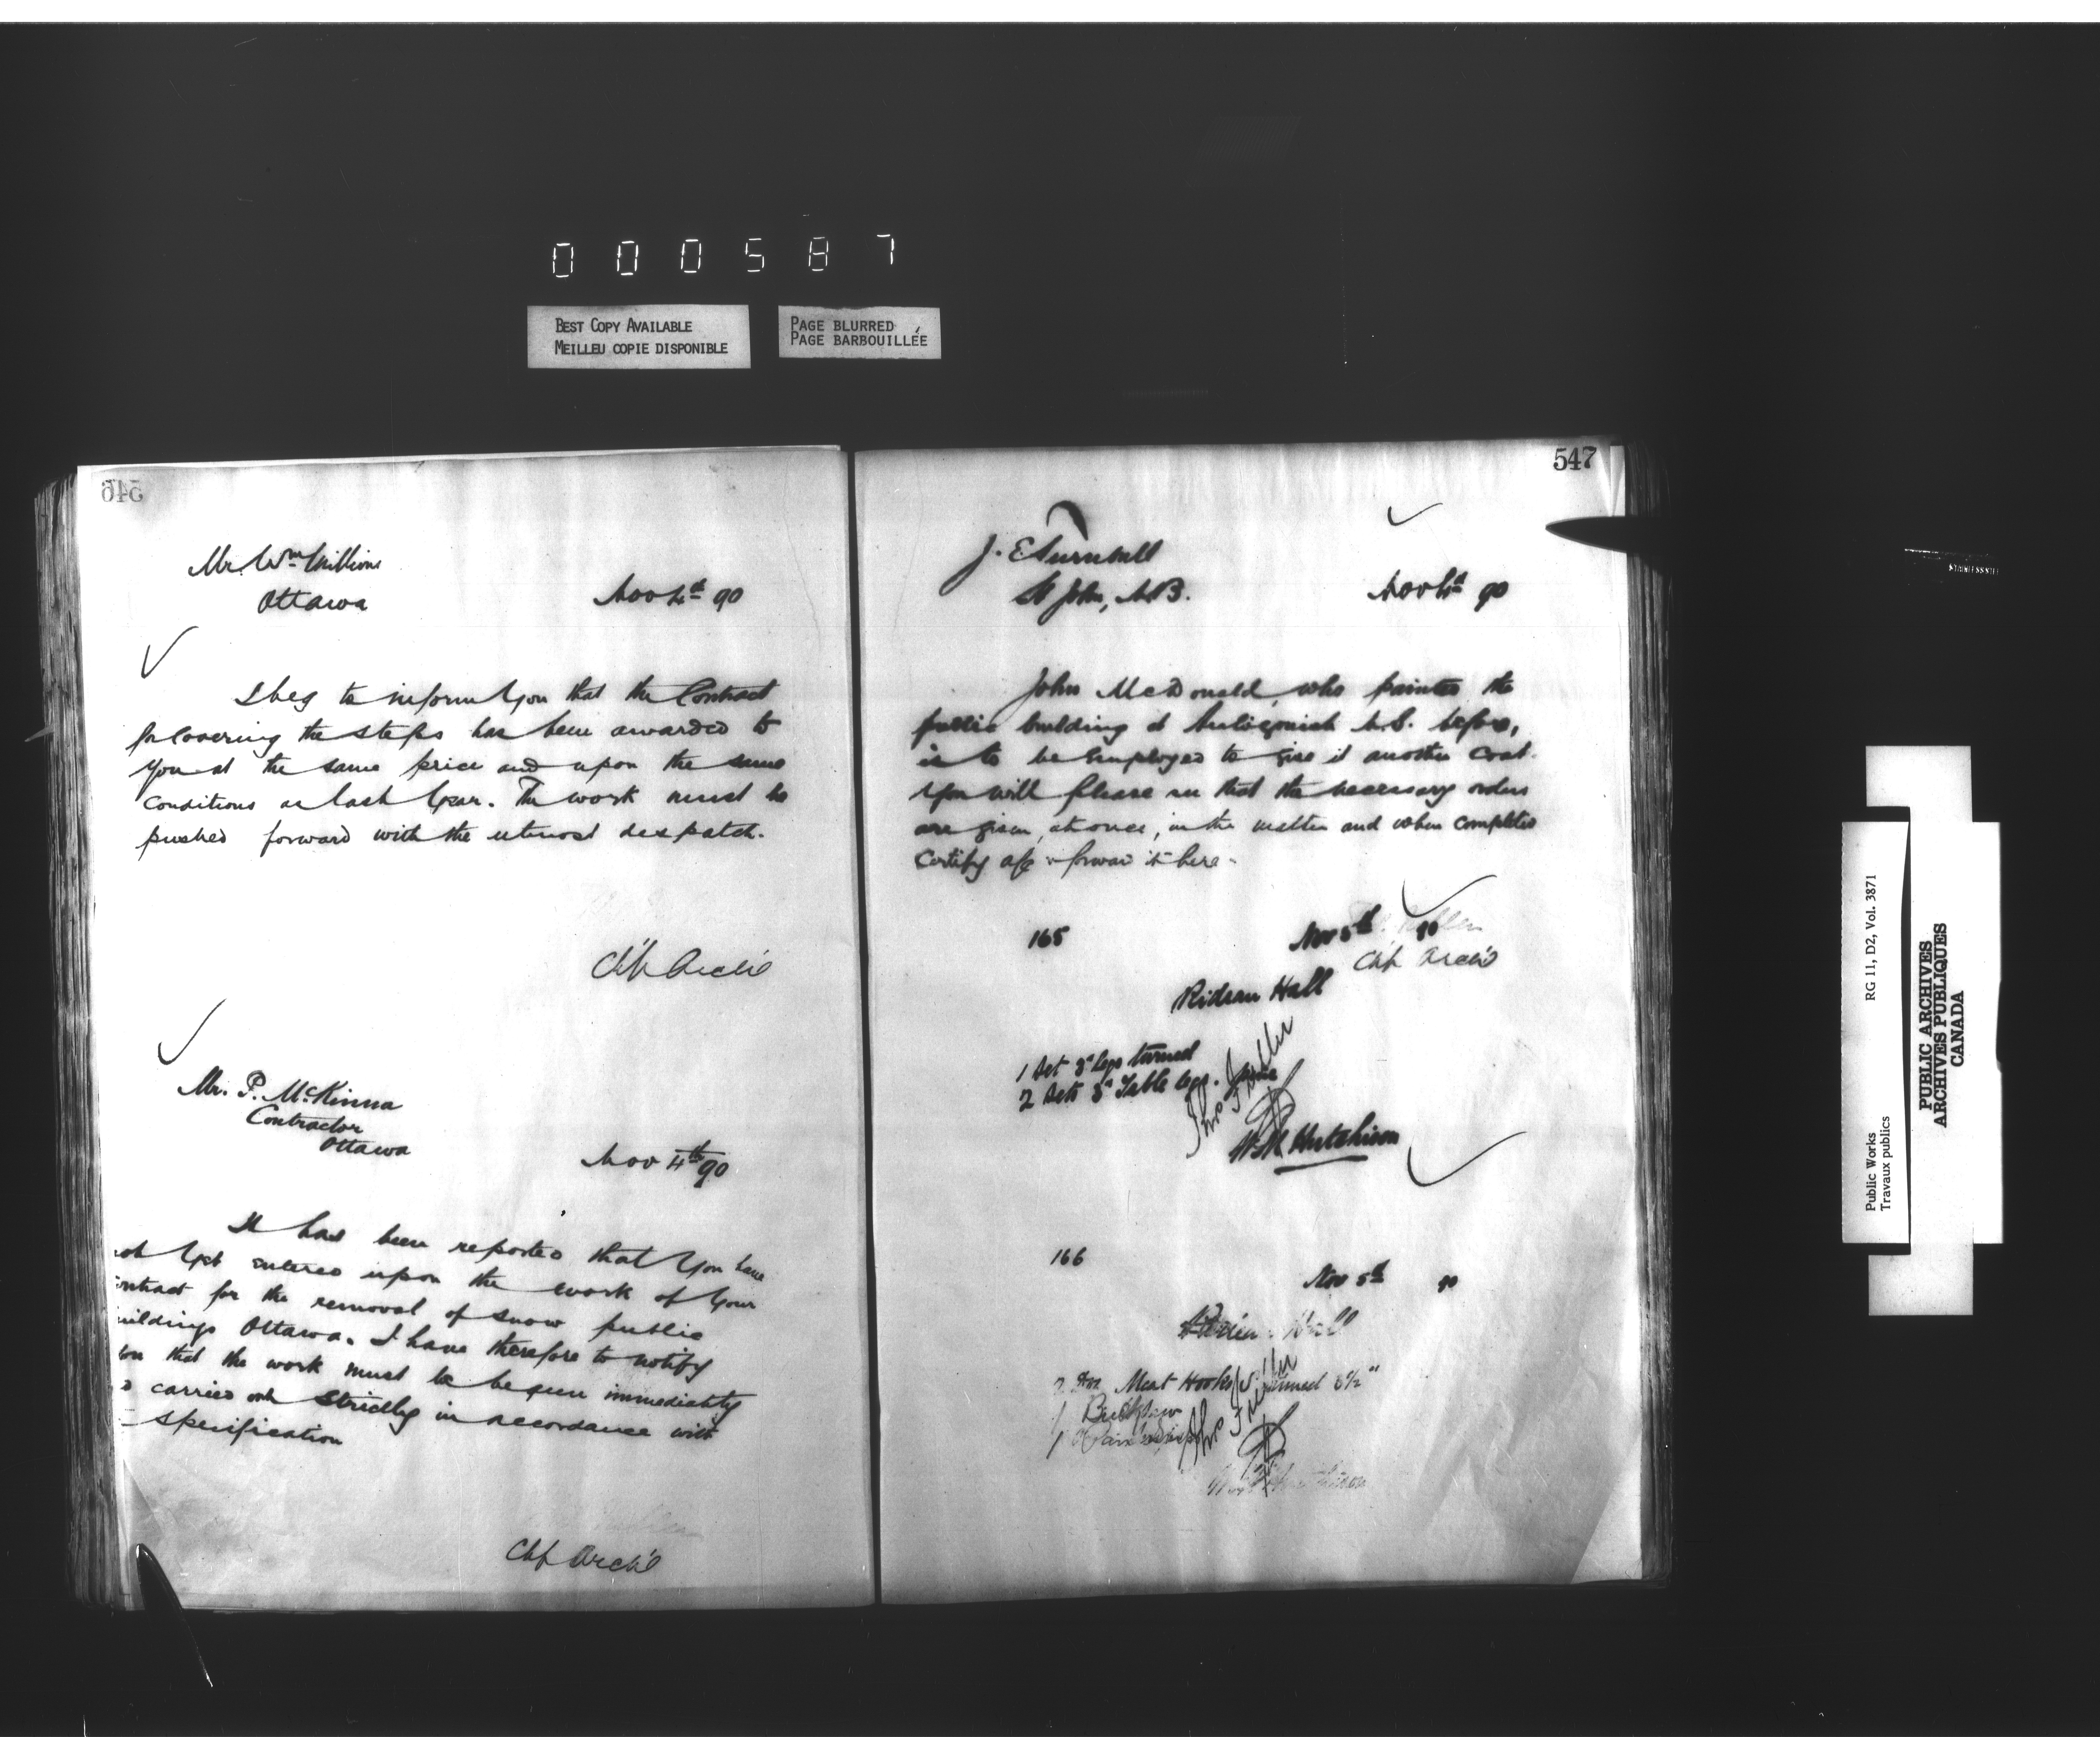 000587
BEST COPY AVAILABLE
MEILLEU COPIE DISPONIBLE
PAGE BLURRED
PAGE BARBOUILLÉE
546
Mr. Wm Millions
Ottawa
Nov 4th 90
I beg to inform you that the Contract
for covering the steps has been awarded to
you at the same price and upon the same
conditions as last year. The work must be
pushed forward with the utmost despatch.
Chf Arch't
Mr. P. McKinna
Contractor
Ottawa
Nov 4th 90
It has been reported that you have
not yet entered upon the work of your
ontract for the removal of snow public
uildings Ottawa. I have therefore to notify
you that the work must be begun immediately
carried out strictly in accordance with
specification
Chf Arch't
547
J. E Turnbull
St John, N.B.
Nov 4th 90
John McDonald, who painted the
public building at Antigonish N.S. before,
is to be employed to give it another coat.
You will please see that the necessary orders
are given, at once, in the matter and when completed
Certify a/c & forward it here.
165
Nov 5th 90
Chf Arch't
Rideau Hall
1 Set 3" legs turned
2 Sets 3" Table legs.
Thos Fuller
W H Hutchison
166
Nov 5th 90
Hall
2 Doz Meat Hooks tinned 3½"
1 Buck Saw
1
Thos Fuller
Public Works
Travaux publics
RG 11, D2, Vol. 3871
PUBLIC ARCHIVES
ARCHIVES PUBLIQUES
CANADA